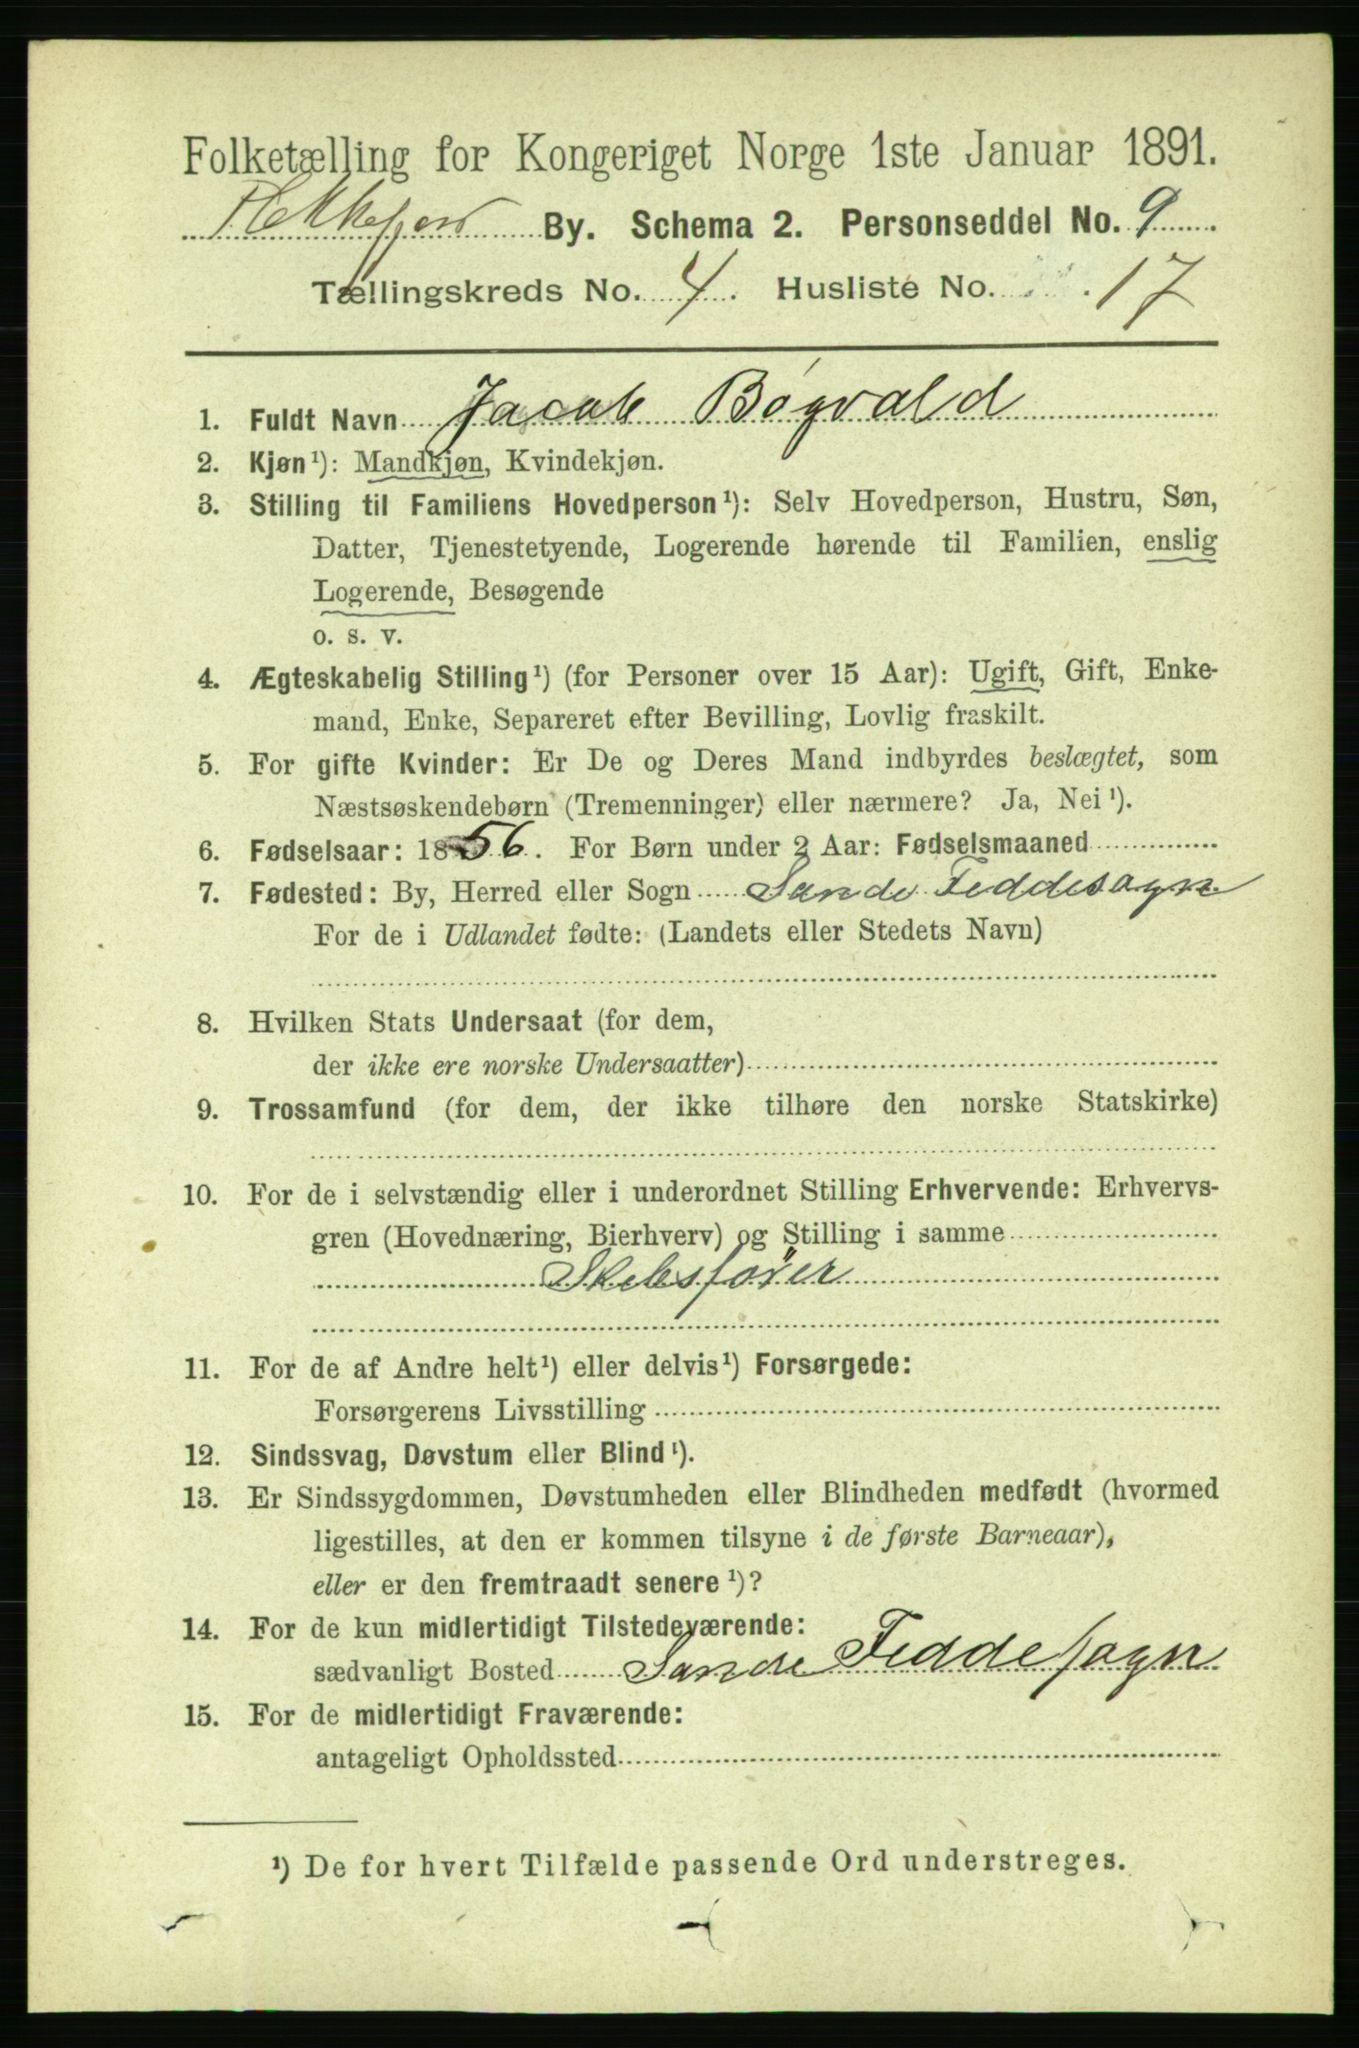 Folketælling for Kongeriget Norge 1ste Januar 1891.
Flekkefjord By. Schema 2. Personseddel No. 9.
Tællingskreds No. 4. Husliste No. 17
1. Fuldt Navn Jacob Bøgvald
2. Kjøn¹): Mandkjøn, Kvindekjøn.
3. Stilling til Familiens Hovedperson¹): Selv Hovedperson, Hustru, Søn,
Datter, Tjenestetyende, Logerende hørende til Familien, enslig
Logerende, Besøgende
o. s. v.
4. Ægteskabelig Stilling¹) (for Personer over 15 Aar): Ugift, Gift, Enke-
mand, Enke, Separeret efter Bevilling, Lovlig fraskilt.
5. For gifte Kvinder: Er De og Deres Mand indbyrdes beslægtet, som
Næstsøskendebørn (Tremenninger) eller nærmere? Ja, Nei¹).
6. Fødselsaar: 1856. For Børn under 2 Aar: Fødselsmaaned
7. Fødested: By, Herred eller Sogn Sande Feddesogn
For de i Udlandet fødte: (Landets eller Stedets Navn)
8. Hvilken Stats Undersaat (for dem,
der ikke ere norske Undersaatter)
9. Trossamfund (for dem, der ikke tilhøre den norske Statskirke)
10. For de i selvstændig eller i underordnet Stilling Erhvervende: Erhvervs-
gren (Hovednæring, Bierhverv) og Stilling i samme
Skibsfører
11. For de af Andre helt¹) eller delvis¹) Forsørgede:
Forsørgerens Livsstilling
12. Sindssvag, Døvstum eller Blind¹).
13. Er Sindssygdommen, Døvstumheden eller Blindheden medfødt (hvormed
ligestilles, at den er kommen tilsyne i de første Barneaar),
eller er den fremtraadt senere¹)?
14. For de kun midlertidigt Tilstedeværende:
sædvanligt Bosted Sande Feddesogn
15. For de midlertidigt Fraværende:
antageligt Opholdssted
¹) De for hvert Tilfælde passende Ord understreges.